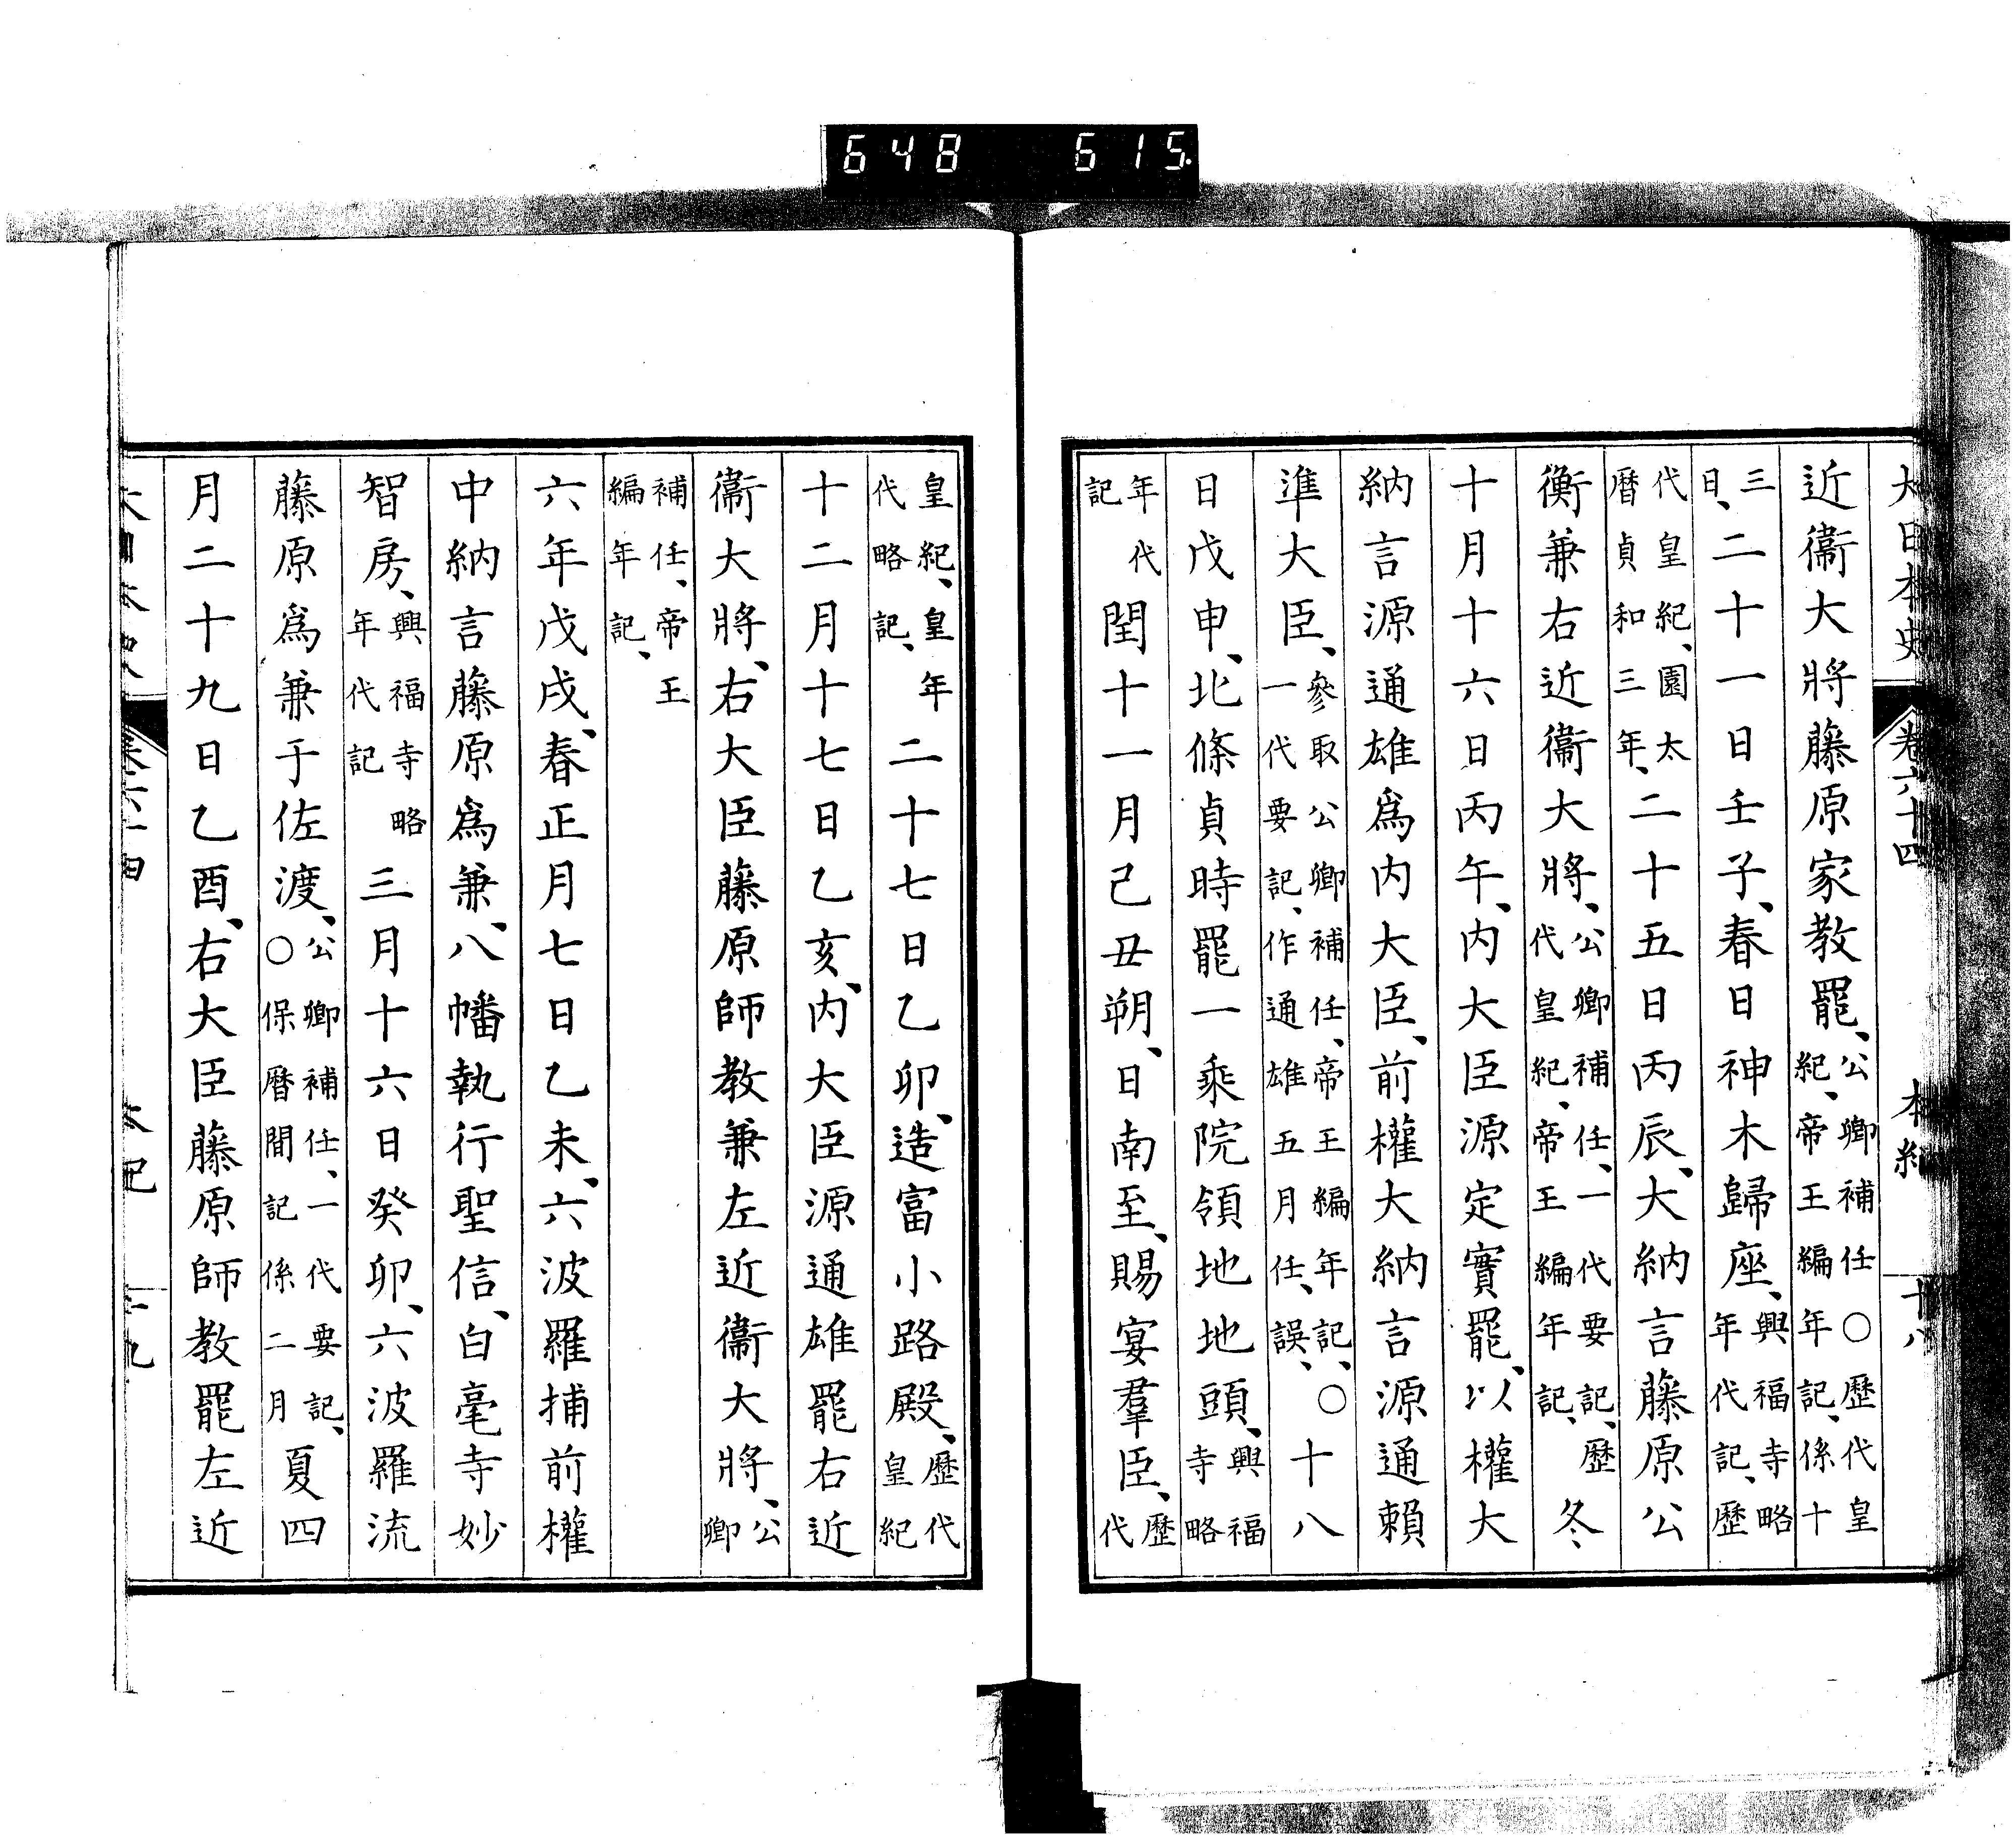 648 615
大日本史 卷六十四 本紀 十八
近衞大將藤原家教罷、公卿補任○歴代皇紀、帝王編年記、係十
三日、二十一日壬子、春日神木歸座、興福寺略年代記、歴
代皇紀、園太曆貞和三年、二十五日丙辰、大納言藤原公
衡兼右近衞大將、公卿補任、一代要記、歴代皇紀、帝王編年記、冬
十月十六日丙午、内大臣源定實罷、以權大
納言源通雄爲内大臣、前權大納言源通賴
準大臣、參取公卿補任、帝王編年記、○一代要記、作通雄五月任、誤、十八
日戊申、北條貞時罷一乘院領地地頭、興福寺略
年代記閏十一月己丑朔、日南至、賜宴羣臣、歴代
皇紀、皇年代略記、二十七日乙卯、造富小路殿、歴代皇紀
十二月十七日乙亥、内大臣源通雄罷右近
衞大將、右大臣藤原師教兼左近衞大將、公卿
補任、帝王編年記、
六年戊戌、春正月七日乙未、六波羅捕前權
中納言藤原爲兼、八幡執行聖信、白毫寺妙
智房、興福寺略年代記三月十六日癸卯、六波羅流
藤原爲兼于佐渡、公卿補任、一代要記、○保曆間記係二月、夏四
月二十九日乙酉、右大臣藤原師教罷左近
大日本史 卷六十四 本紀 十九